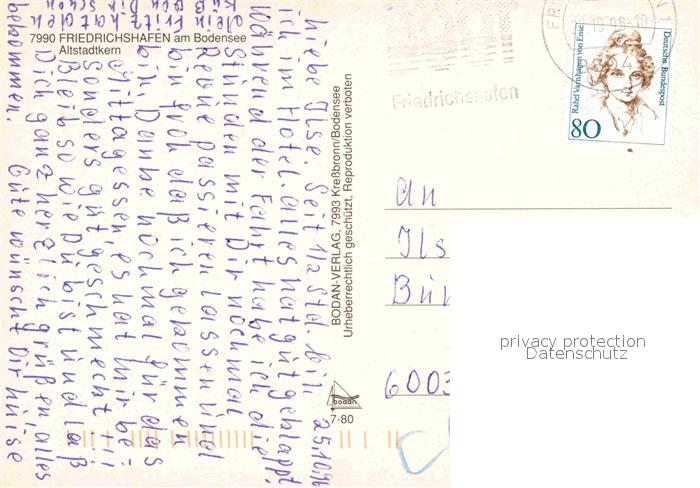 7990 FRIEDRICHSHAFEN am Bodensee
Altstadtkern
25.10.96
Liebe Ilse. Seit 1/2 Std. bin
ich im Hotel. alles hat gut geklappt.
Während der Fahrt habe ich die
Stunden mit Dir nochmal
Revue passieren lassen und
bin froh daß ich gekommen
bin. Danke nochmal für das
Mittagessen, es hat mir be-
sonders gut geschmeckt
Bleib so wie Du bist und laß
Dich ganz herzlich grüßen, alles
Gute wünscht Dir
bekommen.
BODAN-VERLAG, 7993 Kreßbronn/Bodensee
Urheberrechtlich geschützt, Reproduktion verboten
bodan
7-80
Friedrichshafen
Deutsche Bundespost
Rahel Varnhagen von Ense
80
An
Ils
6003
privacy protection
Datenschutz